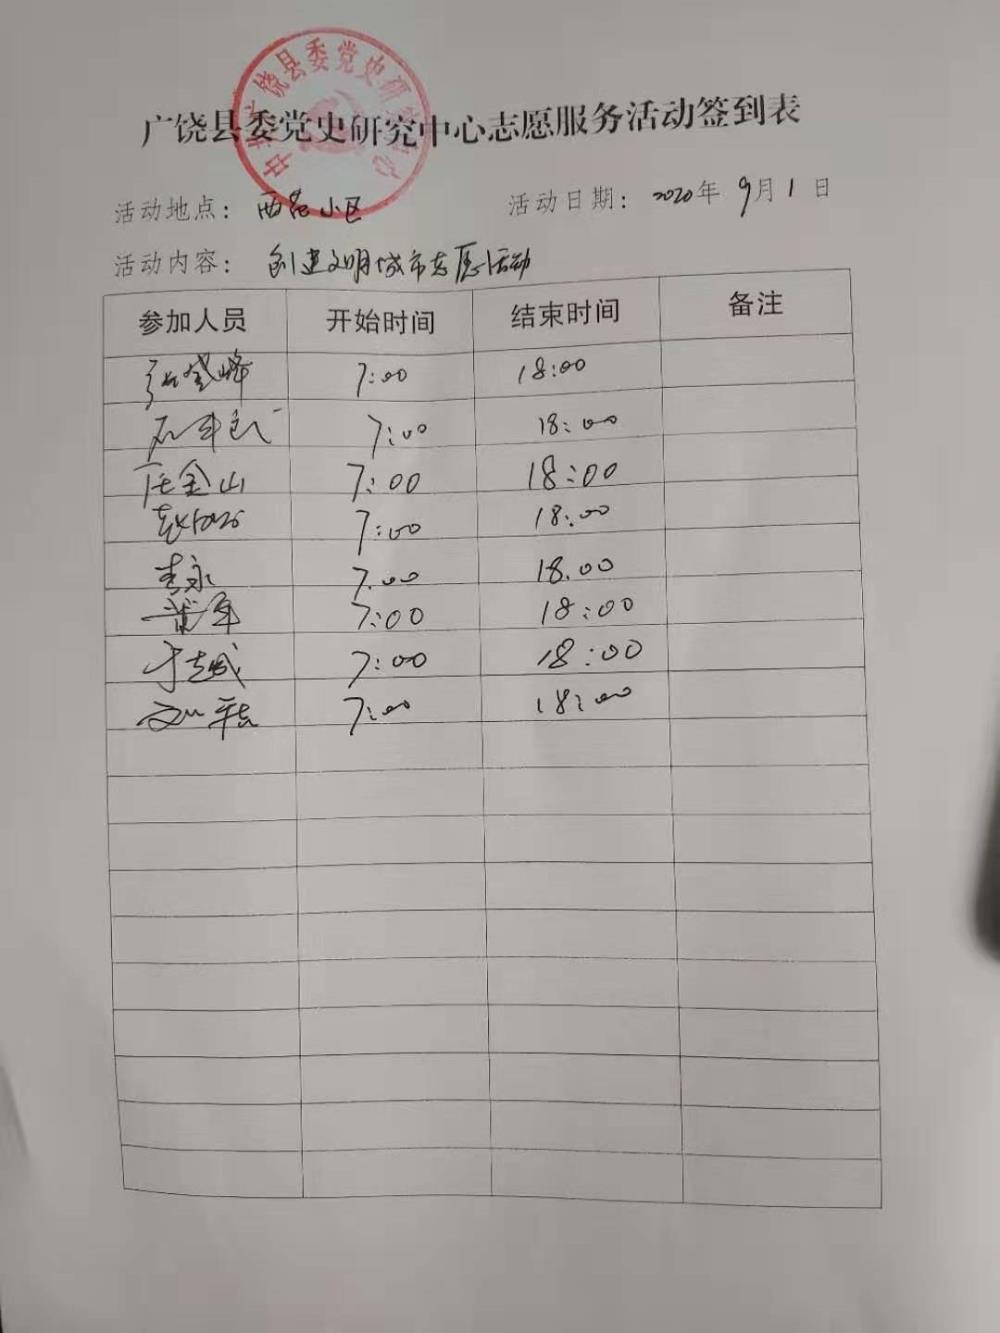 中共广饶县委党史研究中心
广饶县委党史研究中心志愿服务活动签到表
活动地点： 西苑小区 活动日期： 2020年 9月 1日
活动内容： 创建文明城市志愿活动
参加人员 开始时间 结束时间 备注
7:00 18:00
7:00 18:00
任金山 7:00 18:00
7:00 18:00
李永 7.00 18.00
7:00 18:00
7:00 18:00
7:00 18:00